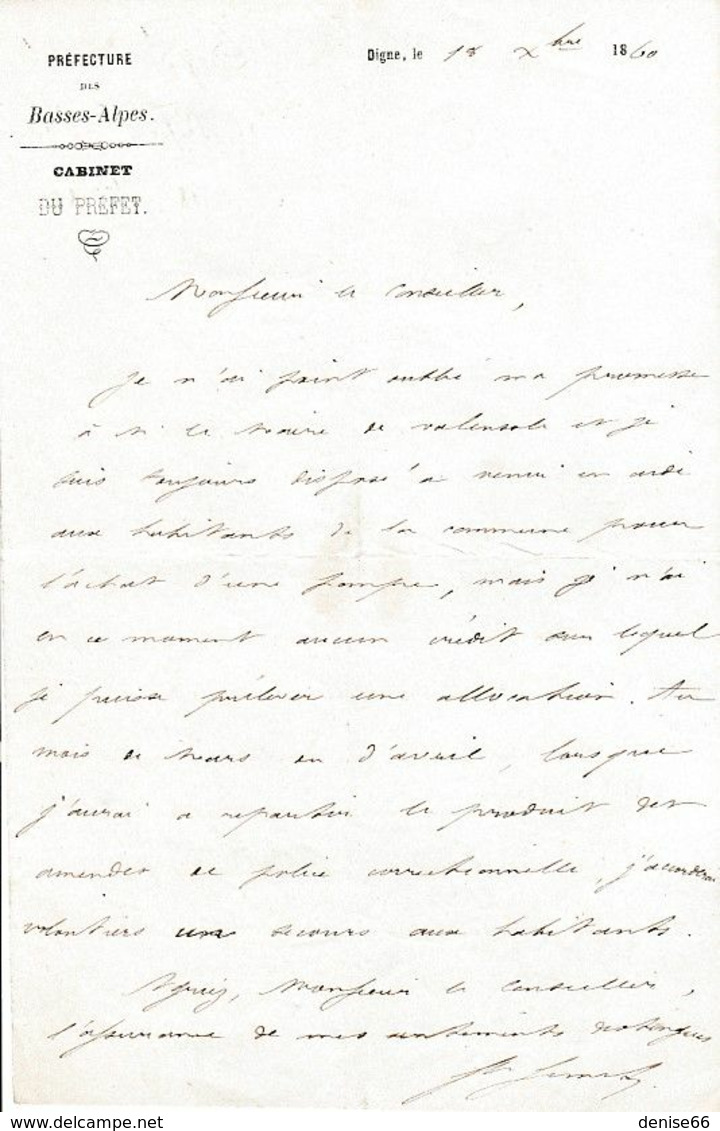 PRÉFECTURE
DES
Basses-Alpes.
CABINET
DU PRÉFET.
Digne, le 18 Xbre 1860
Monsieur le Conseiller,
Je n'ai point oublié ma promesse
à Mr le Maire de Valensole et je
suis toujours disposé à venir en aide
aux habitants de la commune pour
l'achat d'une pompe, mais je n'ai
en ce moment aucun crédit sur lequel
je puisse prélever une allocation. Au
mois de Mars ou d'avril, lorsque
j'aurai a repartir le produit des
amendes de police correctionnelle, j'accorderai
volontiers un secours aux habitants.
Agréez, Monsieur le Conseiller,
l'assurance de mes sentiments distingués
denise66